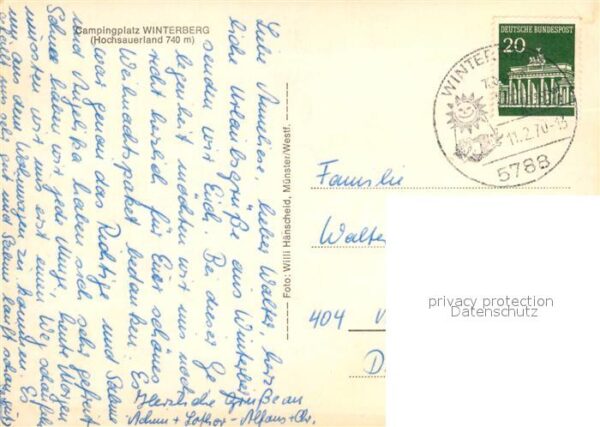 Campingplatz WINTERBERG
(Hochsauerland 740 m)
Liebe Anneliese, lieber Walter, herz
liche Urlaubsgrüße aus Winterberg
senden wir Euch. Bei dieser Ge
legenheit möchten wir uns noch
recht herzlich für Euer schönes
Weihnachtspaket bedanken. Es
war genau das Richtige und Sabine
und Angelika haben sich sehr gefreut
Schnee haben wir jede Menge, heute Morgen
mussten wir uns erst mal
aus dem
gut und Sabine läuft schon
Herzliche Grüße an
Lothar
Foto: Willi Hänscheid, Münster/Westf.
DEUTSCHE BUNDESPOST
20
WINTER
11.2.70-13
5788
Familie
Walte
404
privacy protection
Datenschutz